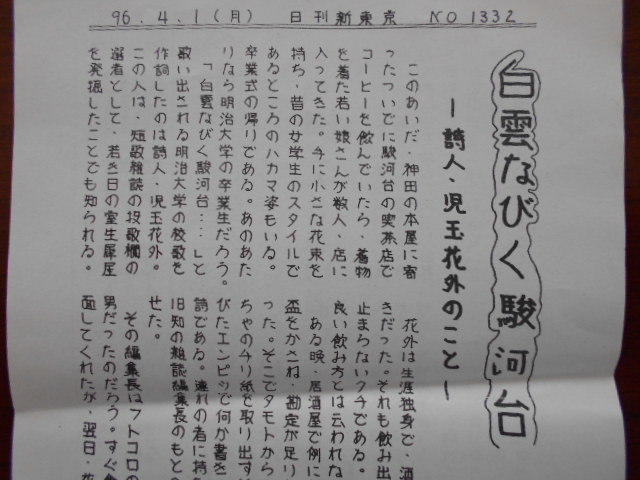 96.4.1(月) 日刊新東京 NO 1332
白雲なびく駿河台
ー詩人・児玉花外のことー
このあいだ・神田の本屋に寄
ったついでに駿河台の喫茶店で
コーヒーを飲んでいたら、着物
を着た若い娘さんが数人、店に
入ってきた。今に小さな花束を
持ち、昔の女学生のスタイルで
あるところのハカマ姿もいる。
卒業式の帰りである。あのあた
りなら明治大学の卒業生だろう。
「白雲なびく駿河台…」と
歌い出される明治大学の校歌を
作詞したのは詩人・児玉花外。
この人は、短歌雑談の投歌欄の
選者として、若き日の室生犀星
を発掘したことでも知られる。
花外は生涯独身で、酒
きだった。それも飲み出
止まらないクチである。
良い飲み方とは云われな
ある晩、居酒屋で例に
盃をかさね、勘定が足り
った。そこでタモトから
ちゃのチリ紙を取り出す
びたエンピツで何か書き
詩である。連れの者に持
旧知の雑誌編集長のもとへ
せた。
その編集長はフトコロの
男だったのだろう。すぐ
面してくれたが、翌日、花